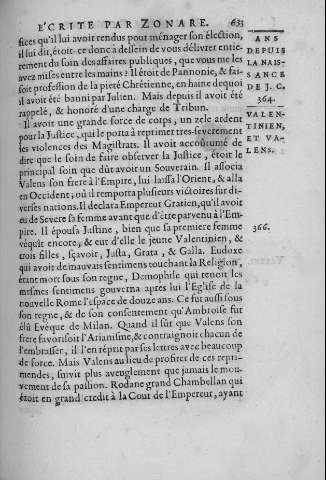 E'CRITE PAR ZONARE. 633
fices qu'il lui avoit rendus pour ménager son élection,
il lui dit, étoit-ce donc à dessein de vous délivrer entie-
rement du soin des affaires publiques, que vous me les
avez mises entre les mains? Il étoit de Pannonie, & fai-
soit profession de la pieté Chrétienne, en haine dequoi
il avoit été banni par Julien. Mais depuis il avoit été
rappelé, & honoré d'une charge de Tribun.
Il avoit une grande force de corps, un zele ardent
pour la Justice, qui le porta à reprimer tres-severement
les violences des Magistrats. Il avoit accoûtumé de
dire que le soin de faire observer la Justice, étoit le
principal soin que dût avoir un Souverain. Il associa
Valens son frere à l'Empire, lui laissa l'Orient, & alla
en Occident, où il remporta plusieurs victoires sur di-
verses nations. Il declara Empereur Gratien, qu'il avoit
eu de Severe sa femme avant que d'être parvenu à l'Em-
pire. Il épousa Justine, bien que sa premiere femme
véquît encore, & eut d'elle le jeune Valentinien, &
trois filles, sçavoir, Justa, Grata, & Galla. Eudoxe
qui avoit de mauvais sentimens touchant la Religion,
étant mort sous son regne, Demophile qui tenoit les
mêmes sentimens gouverna aprés lui l'Eglise de la
nouvelle Rome l'espace de douze ans. Ce fut aussi sous
son regne, & de son consentement qu'Ambroise fut
élû Evêque de Milan. Quand il sut que Valens son
frere favorisoit l'Arianisme, & contraignoit chacun de
l'embrasser, il l'en réprit par ses lettres avec beaucoup
de force. Mais Valens au lieu de profiter de ces repri-
mendes, suivit plus aveuglement que jamais le mou-
vement de sa passion. Rodane grand Chambellan qui
étoit en grand credit à la Cour de l'Empereur, ayant
ANS
DEPUIS
LA NAIS-
SANCE
DE J. C.
364.
VALEN-
TINIEN,
ET VA-
LENS.
366.